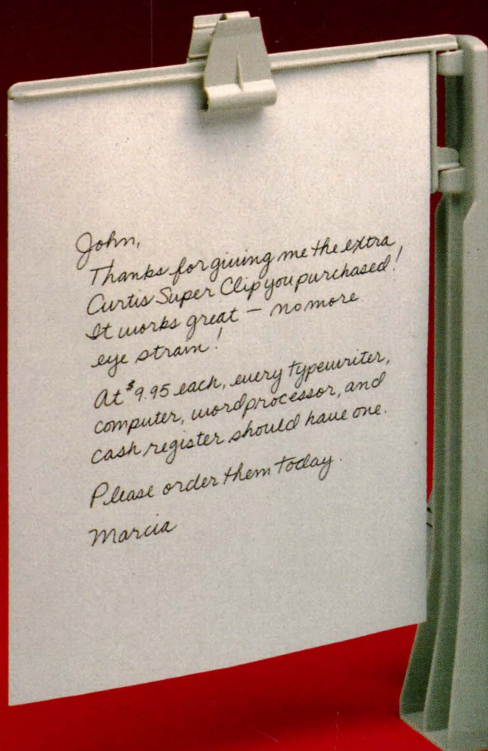 John,
Thanks for giving me the extra
Curtis Super Clip you purchased!
It works great – no more
eye strain!
At $9.95 each, every typewriter,
computer, wordprocessor, and
cash register should have one.
Please order them today.
Marcia